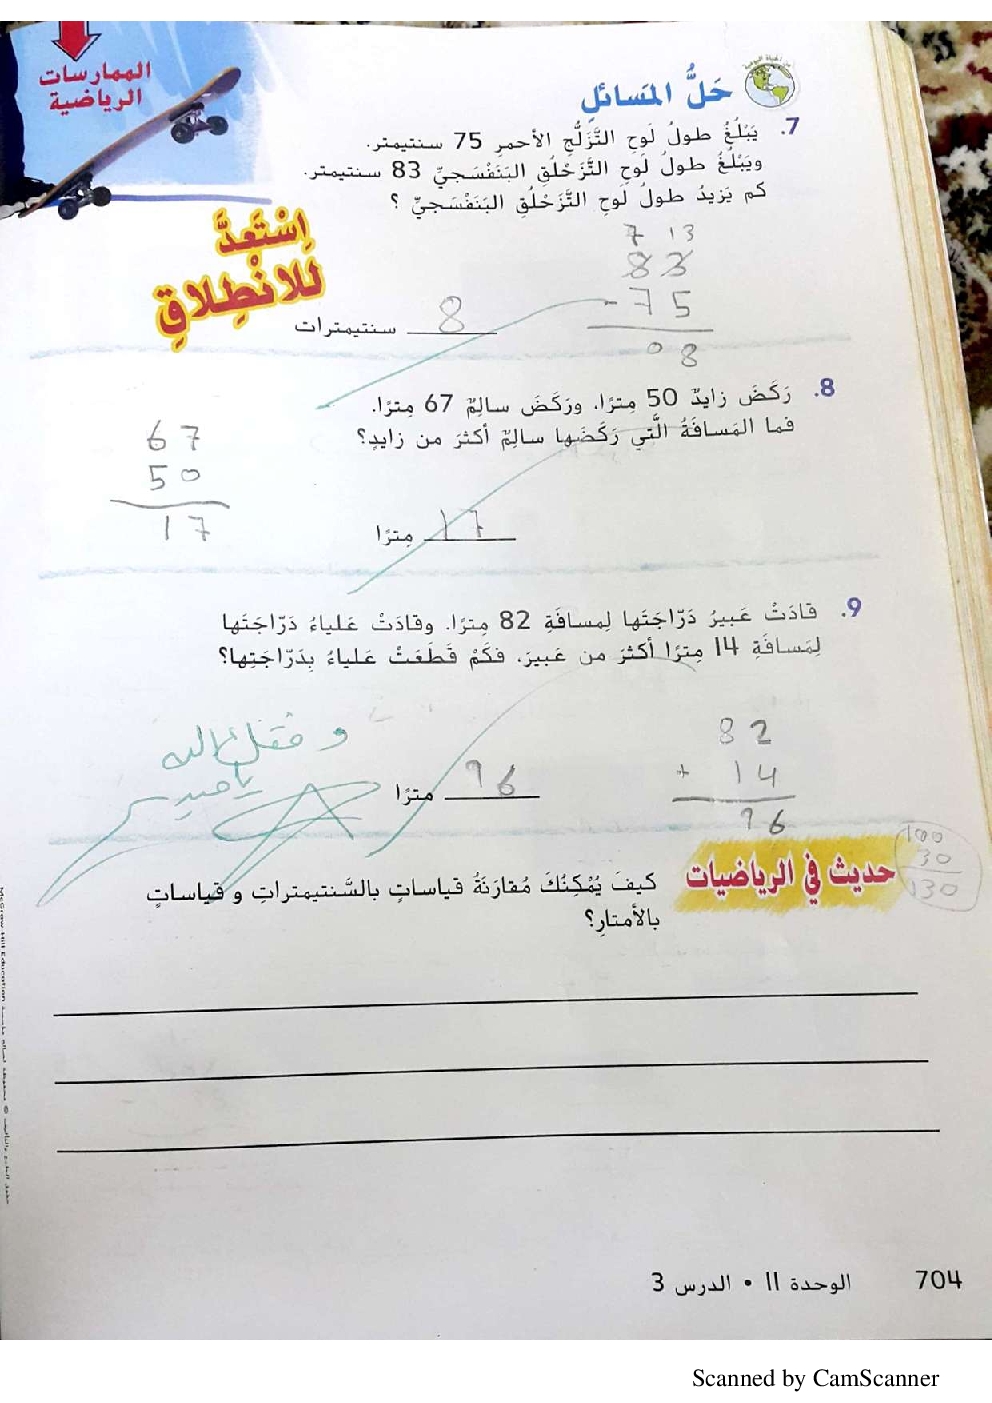 الممارسات
الرياضية
حَلُّ المَسائلِ
7. يَبْلُغُ طولُ لَوحِ التَّزَلُّجِ الأحمرِ 75 سنتيمتر.
ويَبْلُغُ طولُ لَوحِ التَّزَحْلُقِ البَنَفْسَجيِّ 83 سنتيمتر.
كم يَزيدُ طولُ لَوحِ التَّزَحْلُقِ البَنَفْسَجيِّ ؟
اِسْتَعِدَّ
لِلانْطِلاقِ
7 13
83
- 75
08
8 سنتيمترات
8. رَكَضَ زايدٌ 50 مِترًا، ورَكَضَ سالِمٌ 67 مِترًا.
فما المَسافَةُ الَّتي رَكَضَها سالِمٌ أكثرَ من زايدٍ؟
67
50
17
17 مِترًا
9. قادَتْ عَبيرُ دَرّاجَتَها لِمسافَةِ 82 مِترًا. وقادَتْ عَلياءُ دَرّاجَتَها
لِمَسافَةِ 14 مِترًا أكثرَ من عَبيرَ، فكَمْ قَطَعَتْ عَلياءُ بِدَرّاجَتِها؟
82
+ 14
96
96 مترًا
وفقك الله
يا
حديث في الرياضيات
100
30
130
كيفَ يُمْكِنُكَ مُقارَنَةُ قياساتٍ بالسَّنتيمتراتِ و قياساتٍ
بالأمتارِ؟
704 الوحدة 11 • الدرس 3
Scanned by CamScanner